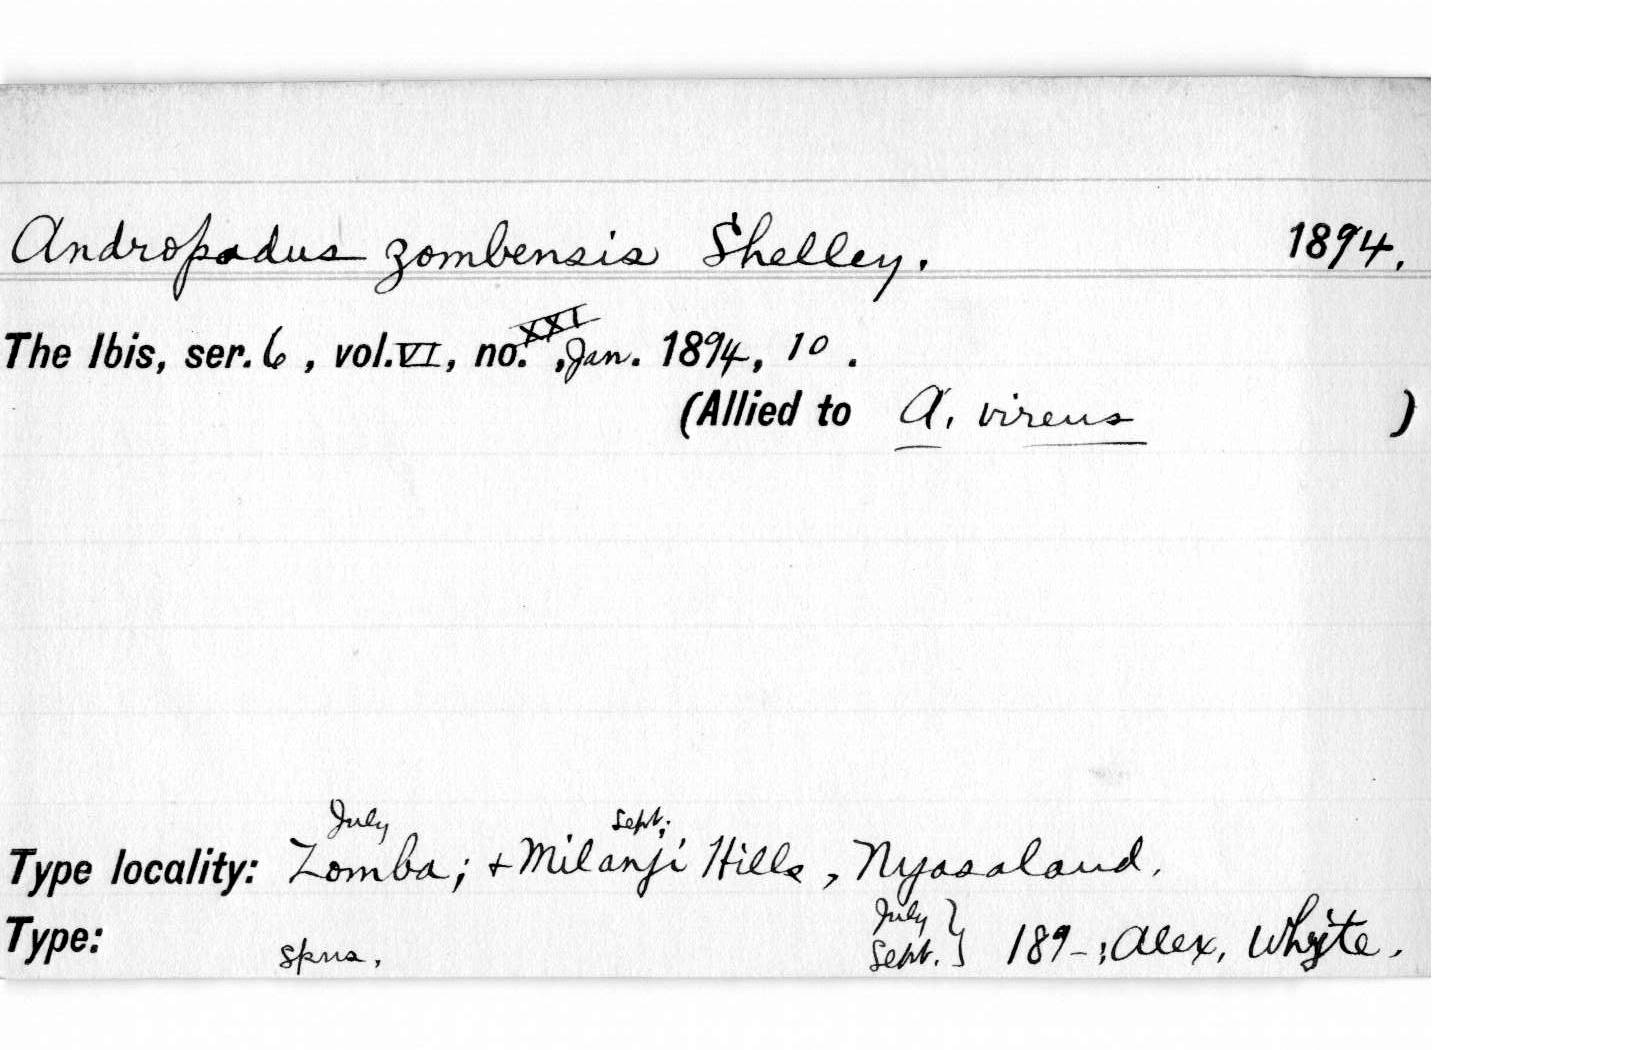 Andropadus zombensis Shelley. 1894.
The Ibis, ser. 6, vol. VI, no. XXI, Jan. 1894, 10.
(Allied to A. virens )
July Sept.
Type locality: Zomba; + Milanji Hills, Nyasaland.
Type: spns. July Sept. } 189-; Alex. Whyte.